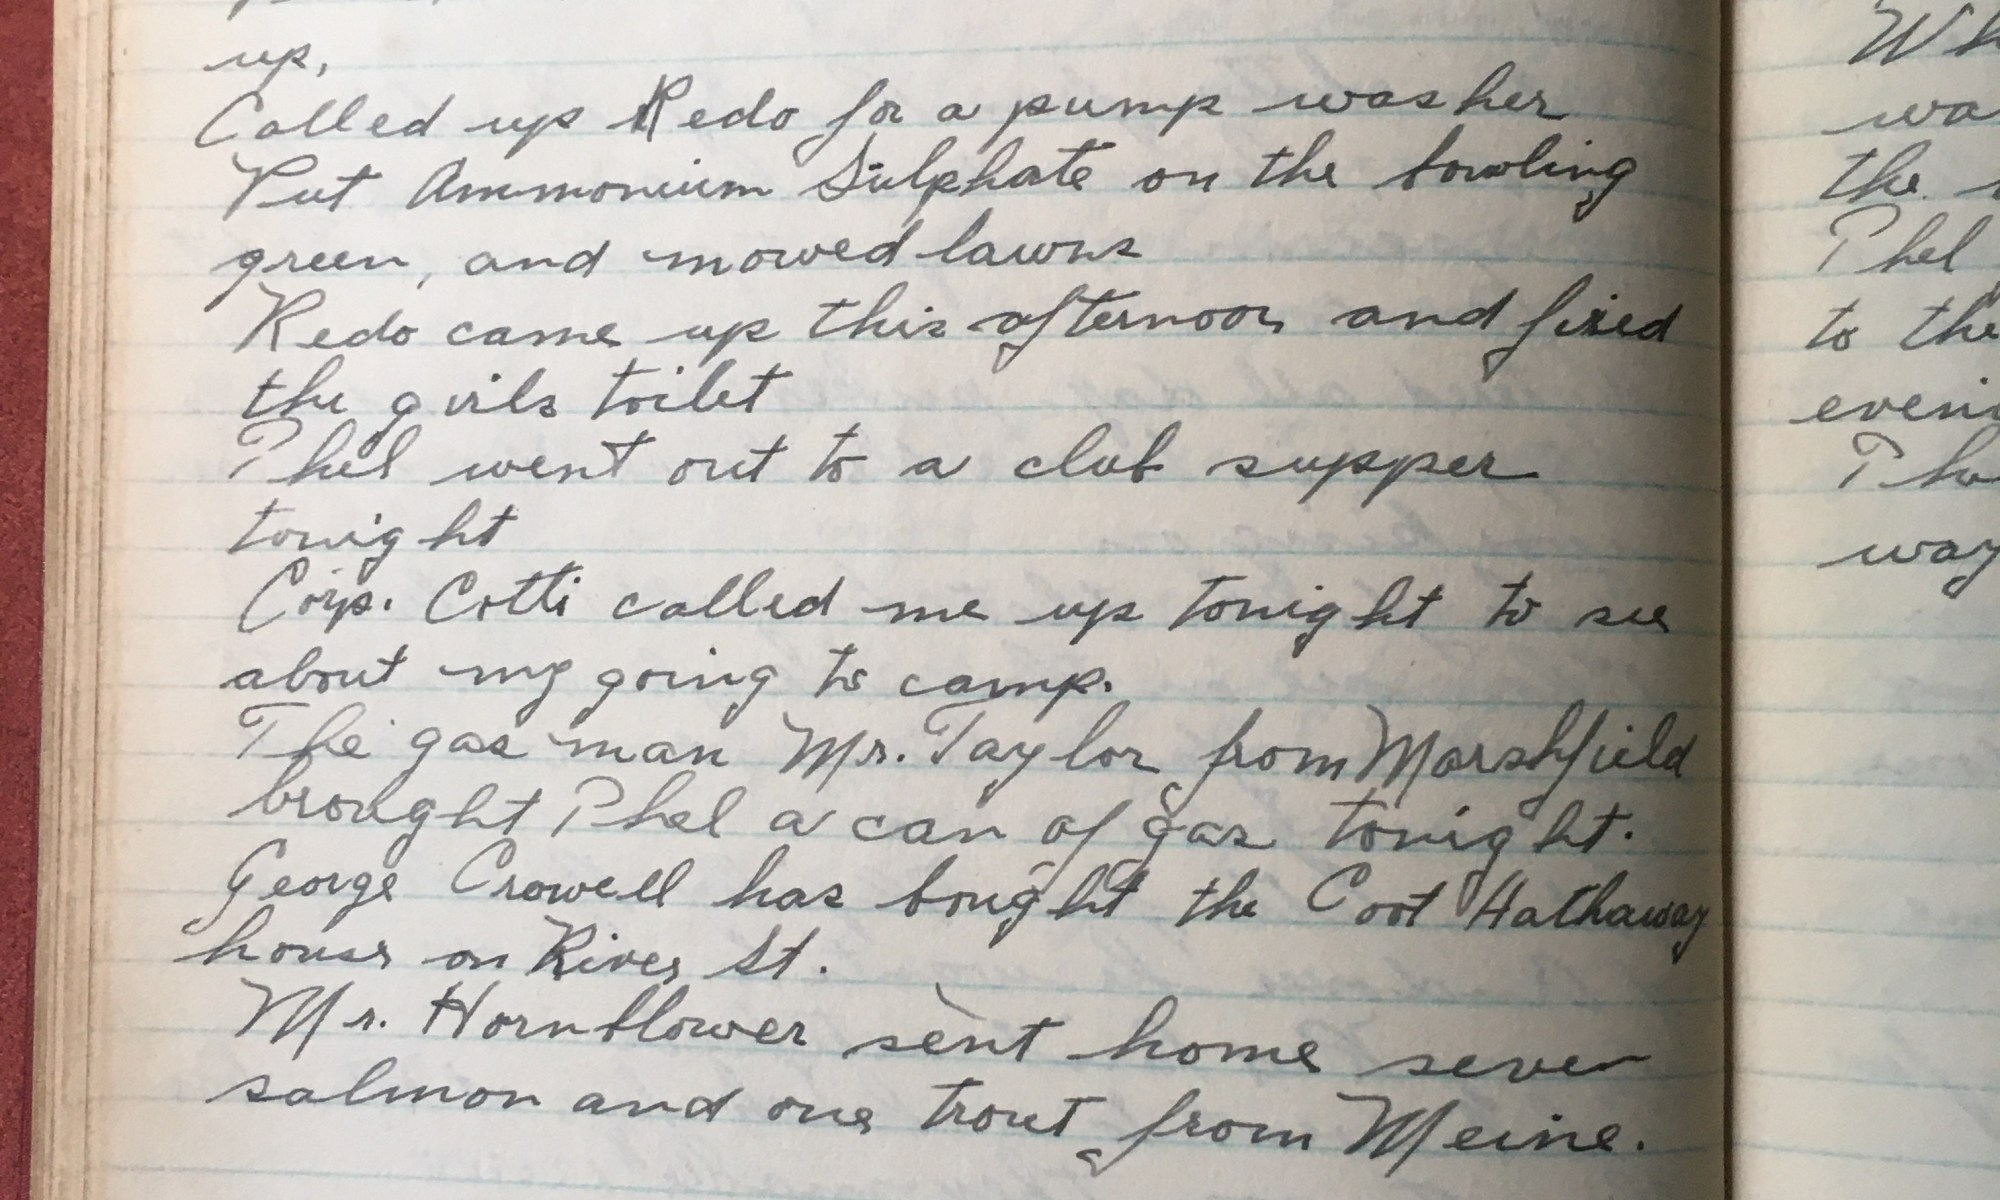 up,
Called up Redo for a pump washer
Put Ammonium Sulphate on the bowling
green, and mowed lawns
Redo came up this afternoon and fixed
the girls toilet
Phel went out to a club supper
tonight
Corp. Cotti called me up tonight to see
about my going to camp.
The gas man Mr. Taylor from Marshfield
brought Phel a can of gas tonight.
George Crowell has bought the Coot Hathaway
house on River St.
Mr. Hornblower sent home seven
salmon and one trout from Meine.
Wh
wa
the
Phel
to the
eveni
Pho
way